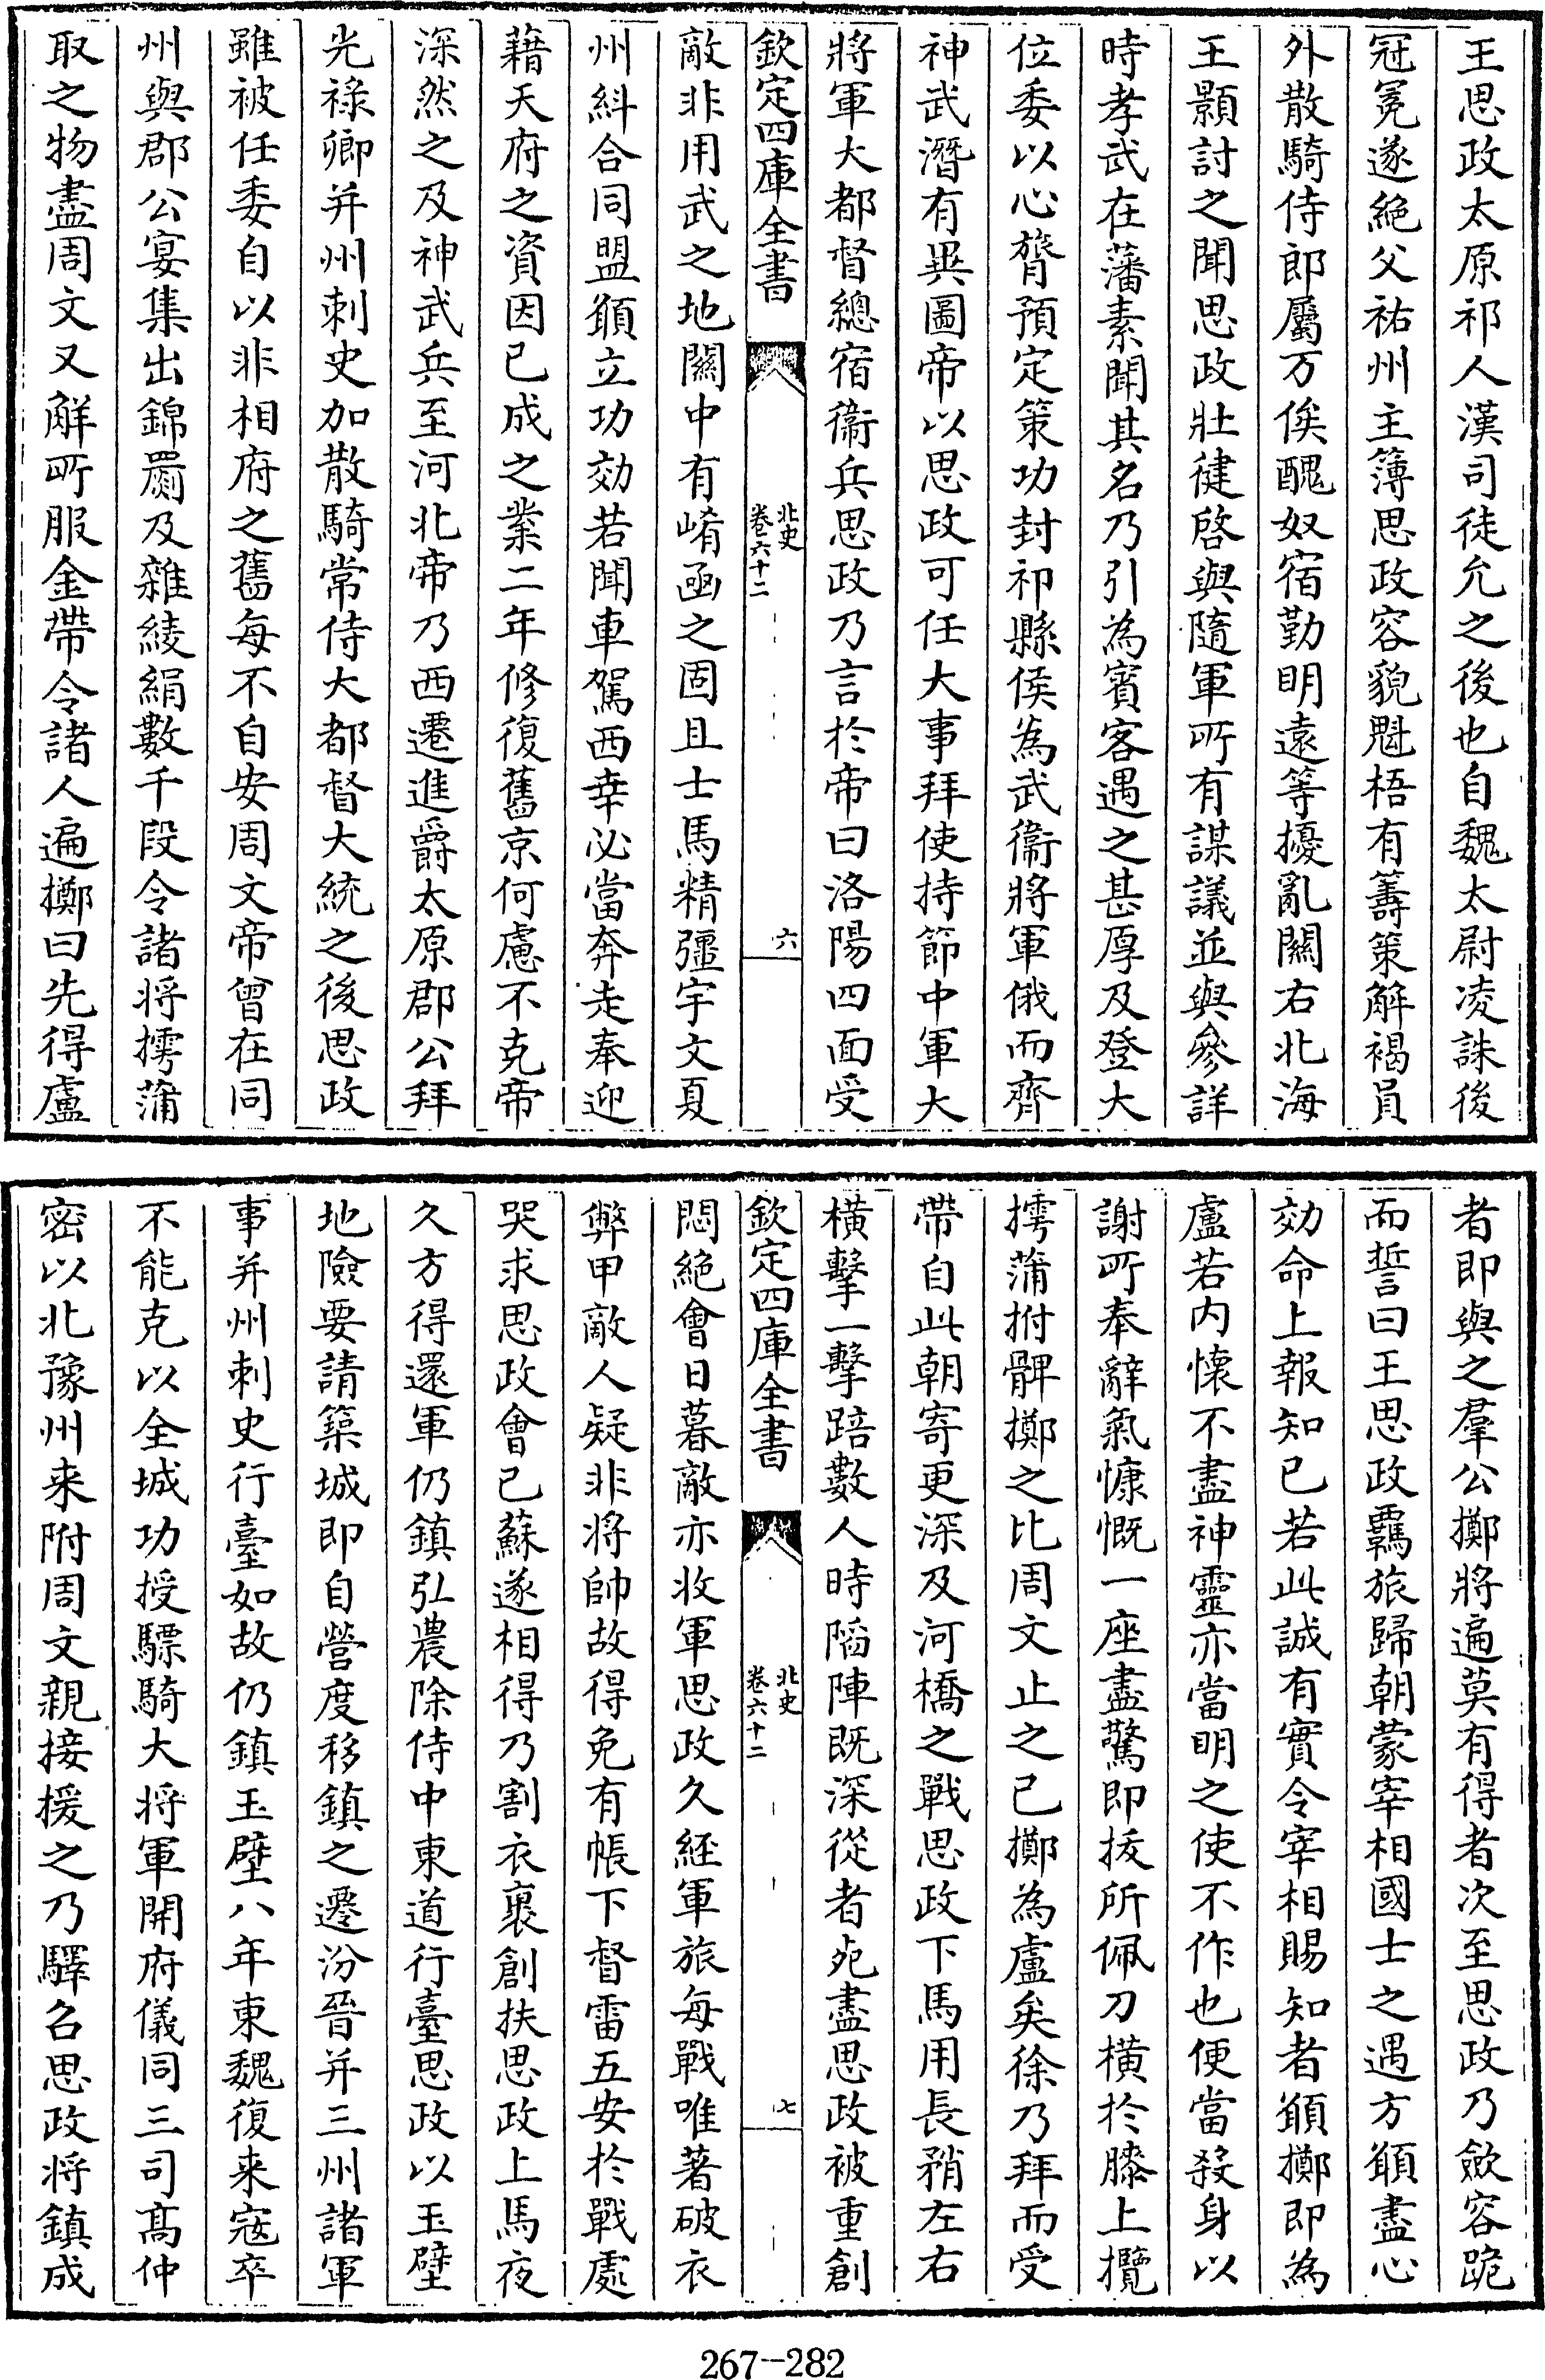 王思政太原祁人漢司徒允之後也自魏太尉凌誅後
冠冕遂絶父祐州主簿思政容貌魁梧有籌策解褐員
外散騎侍郎屬万俟醜奴宿勤明遠等擾亂關右北海
王顥討之聞思政壯健啓與隨軍所有謀議並與參詳
時孝武在藩素聞其名乃引為賓客遇之甚厚及登大
位委以心膂預定策功封祁縣侯為武衞將軍俄而齊
神武潛有異圖帝以思政可任大事拜使持節中軍大
將軍大都督總宿衞兵思政乃言於帝曰洛陽四面受
欽定四庫全書
北史
卷六十二
六
敵非用武之地關中有崤函之固且士馬精彊宇文夏
州糾合同盟願立功効若聞車駕西幸必當奔走奉迎
藉天府之資因已成之業二年修復舊京何慮不克帝
深然之及神武兵至河北帝乃西遷進爵太原郡公拜
光祿卿并州刺史加散騎常侍大都督大統之後思政
雖被任委自以非相府之舊每不自安周文帝曾在同
州與郡公宴集出錦罽及雜綾絹數千段令諸將摴蒲
取之物盡周文又解所服金帶令諸人遍擲曰先得盧
者即與之羣公擲將遍莫有得者次至思政乃歛容跪
而誓曰王思政羈旅歸朝蒙宰相國士之遇方願盡心
効命上報知己若此誠有實令宰相賜知者願擲即為
盧若内懷不盡神靈亦當明之使不作也便當殺身以
謝所奉辭氣慷慨一座盡驚即拔所佩刀横於膝上攬
摴蒲拊髀擲之比周文止之已擲為盧矣徐乃拜而受
帶自此朝寄更深及河橋之戰思政下馬用長矟左右
横擊一擊踣數人時䧟陣既深從者死盡思政被重創
欽定四庫全書
北史
卷六十二
七
悶絶會日暮敵亦收軍思政久經軍旅每戰唯著破衣
弊甲敵人疑非將帥故得免有帳下督雷五安於戰處
哭求思政會已蘇遂相得乃割衣裹創扶思政上馬夜
久方得還軍仍鎮弘農除侍中東道行臺思政以玉壁
地險要請築城即自營度移鎮之遷汾晉并三州諸軍
事并州刺史行臺如故仍鎮玉壁八年東魏復来寇卒
不能克以全城功授驃騎大將軍開府儀同三司髙仲
密以北豫州来附周文親接援之乃驛召思政將鎮成
267-282